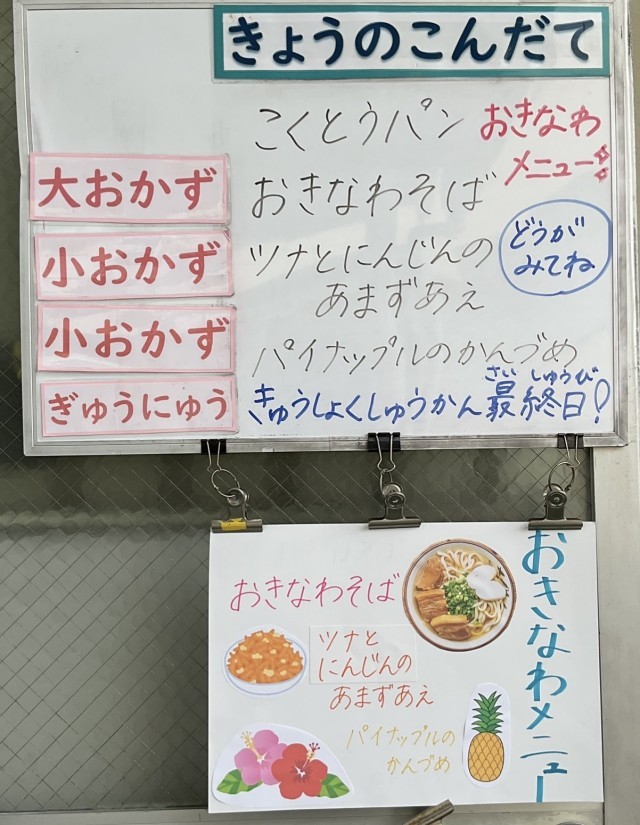 きょうのこんだて
こくとうパン
おきなわ
メニュー
大おかず
おきなわそば
小おかず
ツナとにんじんの
あまずあえ
どうが
みてね
小おかず
パイナップルのかんづめ
ぎゅうにゅう
さい しゅうび
きゅうしょくしゅうかん最終日!
おきなわメニュー
おきなわそば
ツナと
にんじんの
あまずあえ
パイナップルの
かんづめ